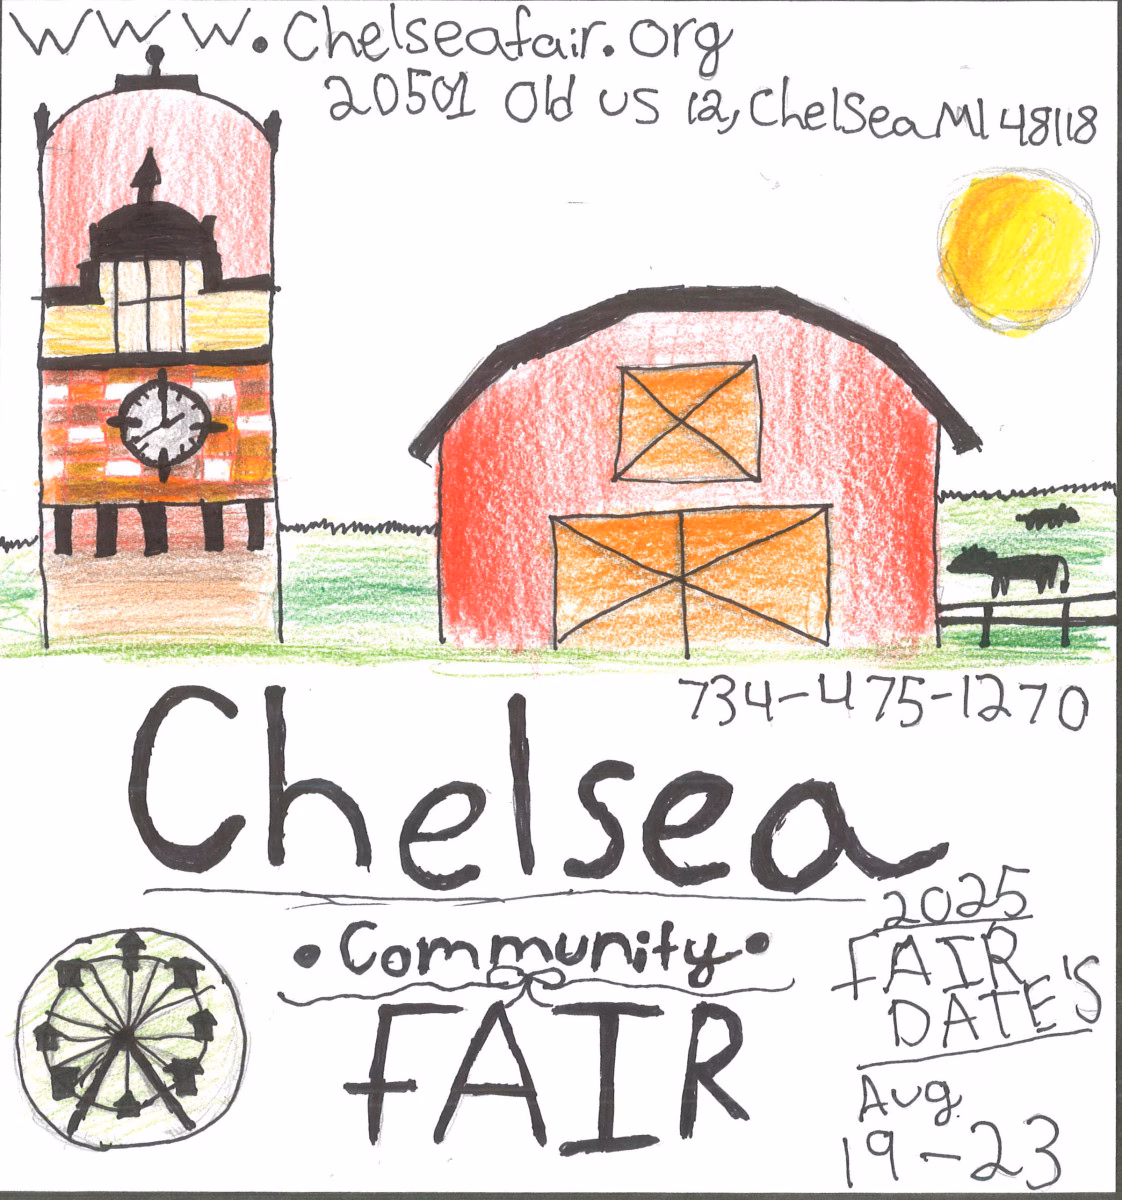 www.Chelseafair.org
20501 Old US 12, Chelsea MI 48118
734-475-1270
Chelsea
• Community •
FAIR
2025
FAIR
DATE'S
Aug.
19-23